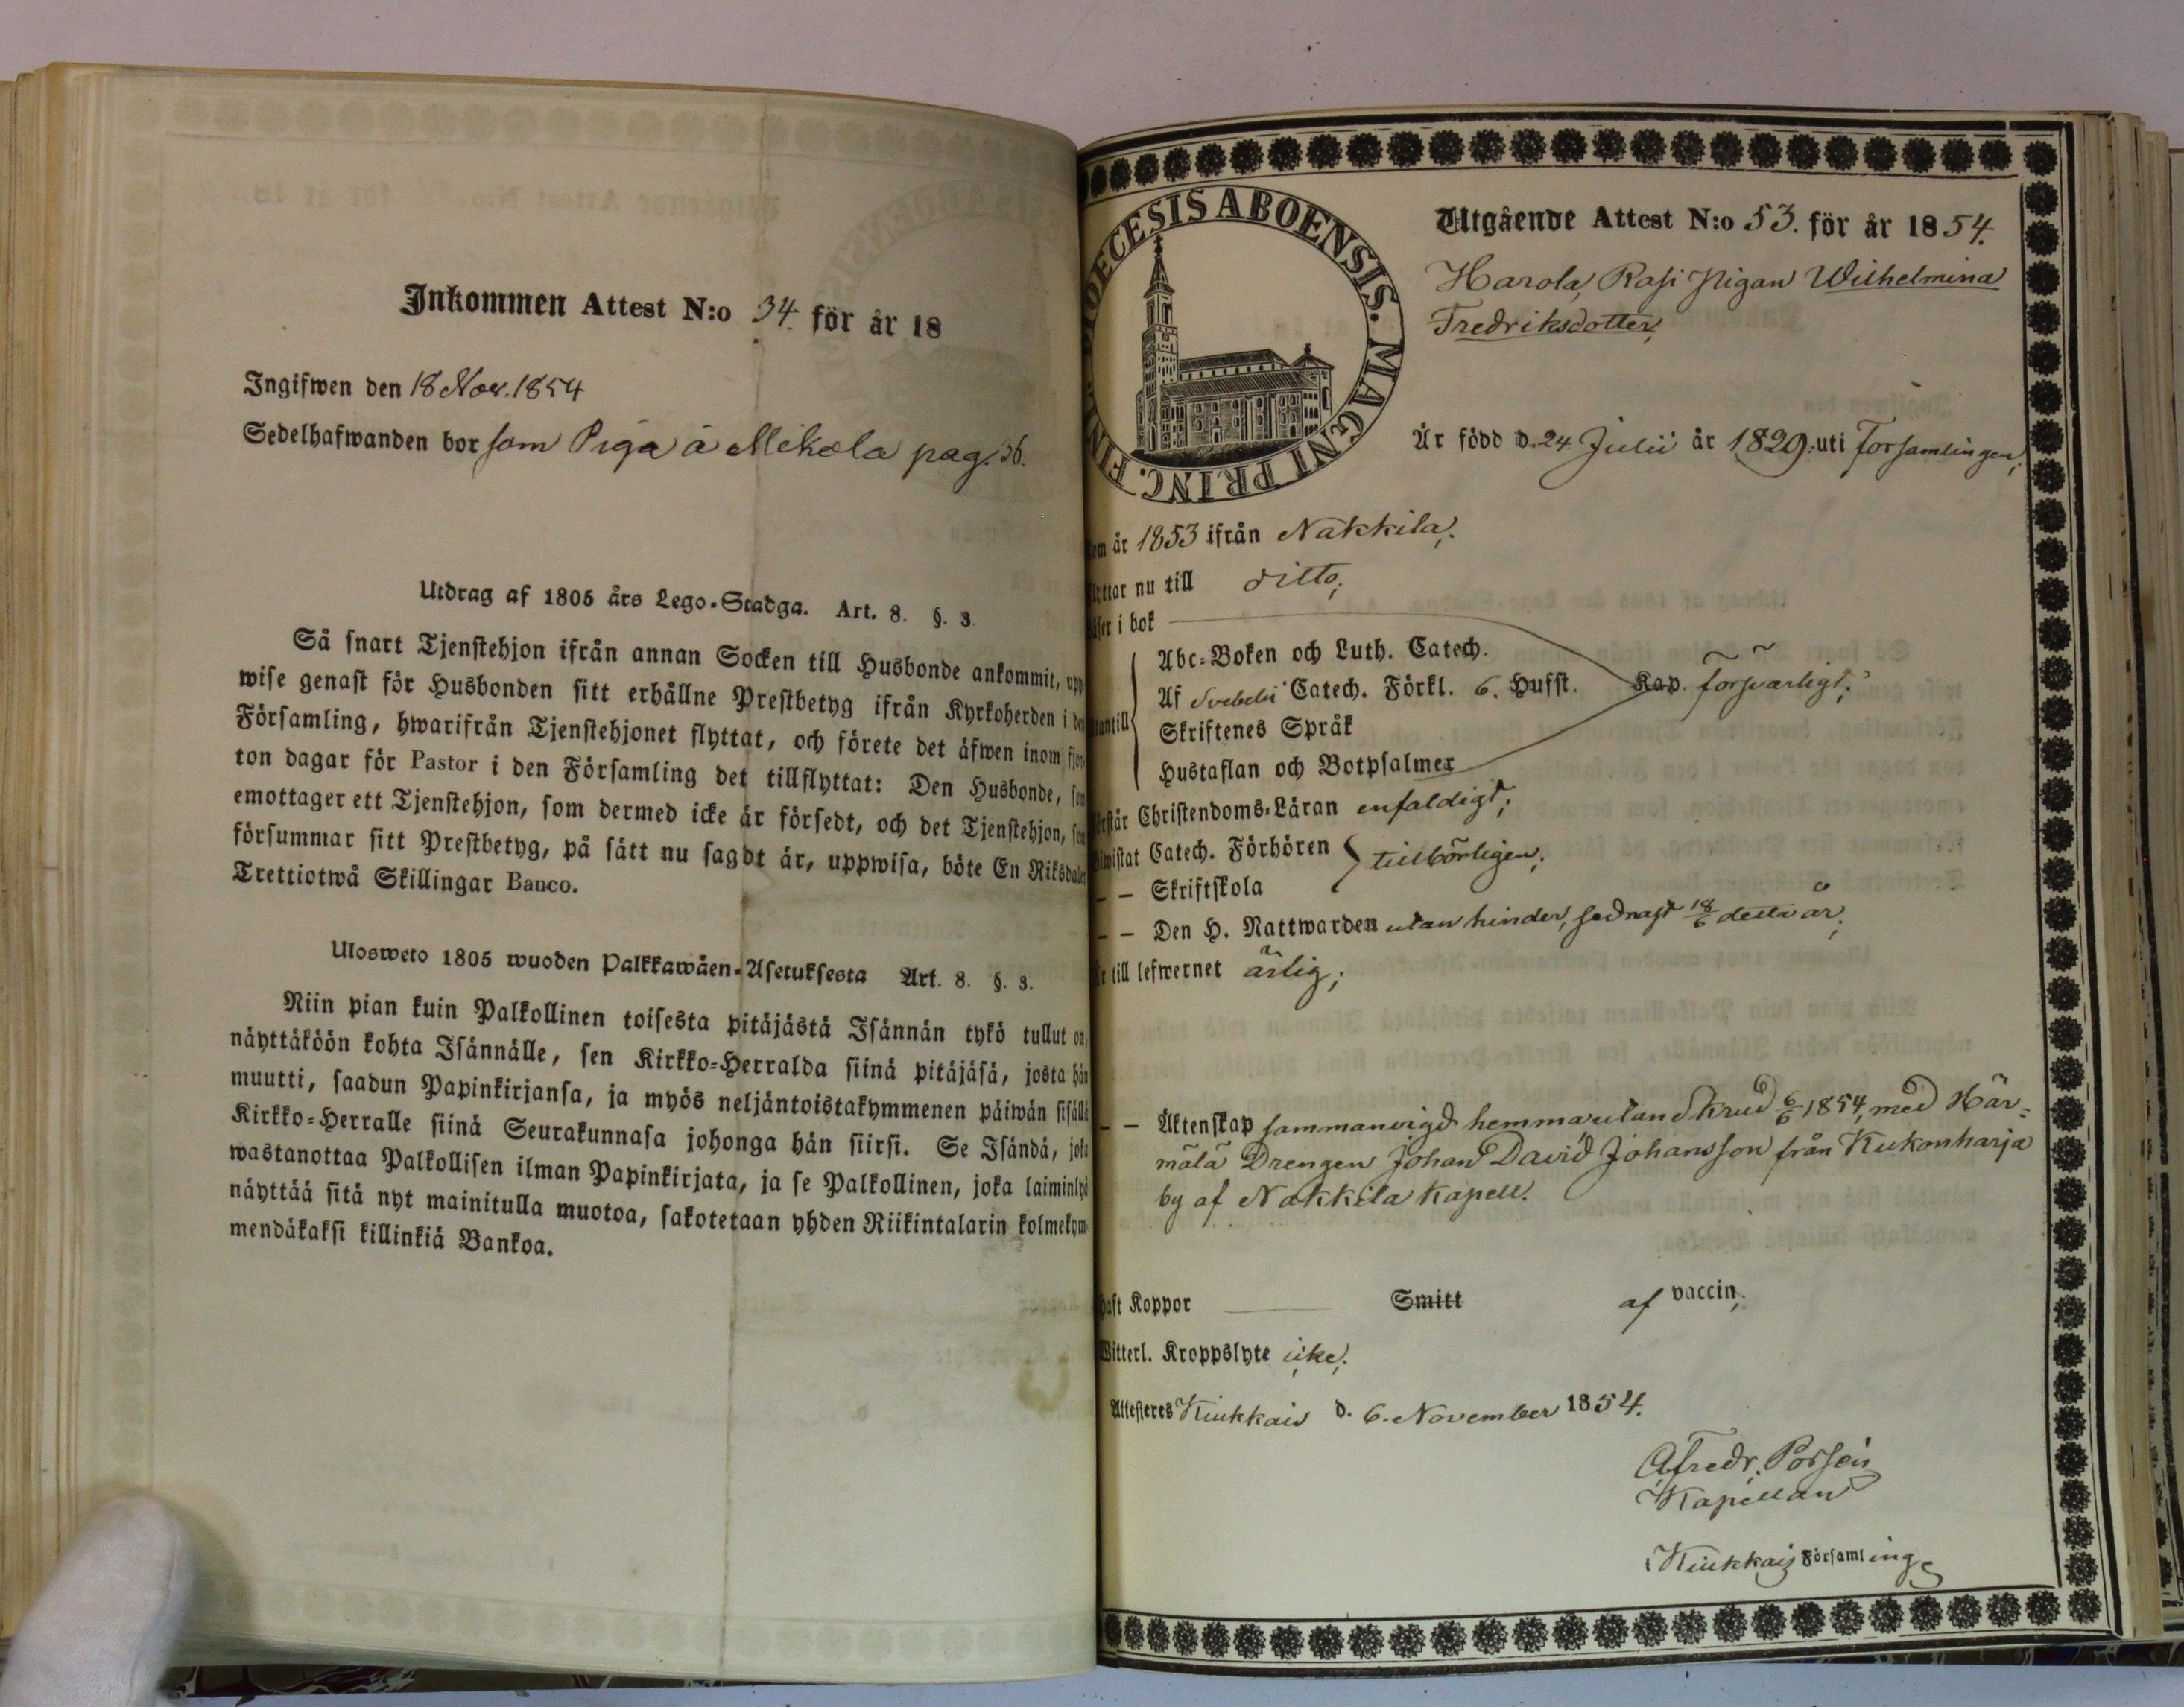 Inkommen Attest N:o 34. för år 18
Ingifwen den 18 Nov. 1854
Sedelhafwanden bor som Piga å Mikola pag. 36.
Utdrag af 1805 års Lego-Stadga. Art. 8. §. 3.
Så snart Tjenstehjon ifrån annan Socken till Husbonde ankommit, upp-
wise genast för Husbonden sitt erhållne Prestbetyg ifrån Kyrkoherden i den
Församling, hwarifrån Tjenstehjonet flyttat, och förete det äfwen inom fjor-
ton dagar för Pastor i den Församling det tillflyttat: Den Husbonde, som
emottager ett Tjenstehjon, som dermed icke är försedt, och det Tjenstehjon, som
försummar sitt Prestbetyg, på sätt nu sagdt är, uppwisa, böte En Riksdaler
Trettiotwå Skillingar Banco.
Ulosweto 1805 wuoden Palkkawäen-Asetuksesta Art. 8. §. 3.
Niin pian kuin Palkollinen toisesta pitäjästä Isännän tykö tullut on,
näyttäköön kohta Isännälle, sen Kirkko-Herralda siinä pitäjäsä, josta hän
muutti, saadun Papinkirjansa, ja myös neljäntoistakymmenen päiwän sisällä
Kirkko-Herralle siinä Seurakunnasa johonga hän siirsi. Se Isändä, joka
wastanottaa Palkollisen ilman Papinkirjata, ja se Palkollinen, joka laiminlyö
näyttää sitä nyt mainitulla muotoa, sakotetaan yhden Riikintalarin kolmekym-
mendäkaksi killinkiä Bankoa.
DIOECESIS ABOENSIS. MAGNI PRINC. FIN
Utgående Attest N:o 53. för år 1854.
Harola, Rasi Pigan Wilhelmina
Fredriksdotter,
Är född d. 24 Julii år 1829: uti Församlingen,
kom år 1853 ifrån Nakkila;
flyttar nu till ditto;
läser i bok
Abc-Boken och Luth. Catech.
Af Svebelii Catech. Förkl. 6. Hufst. Kap. försvarligt;
utantill
Skriftenes Språk
Hustaflan och Botpsalmer
förstår Christendoms-Läran enfaldigt;
biwistat Catech. Förhören tillbörligen;
– – Skriftskola
– – Den H. Nattwarden utan hinder, sednast 18/6 detta år;
är till lefwernet ärlig;
– – Äktenskap sammanvigd hemma utan skrud 6/6 1854, med Här-
mälä Drengen Johan David Johansson från Kukonharja
by af Nakkila Kapell.
haft Koppor Smitt af vaccin;
Witterl. Kroppslyte icke;
Attesteres Kiukkais d. 6. November 1854.
A. Fredr. Porsén
Kapellan
i Kiukkais Församling